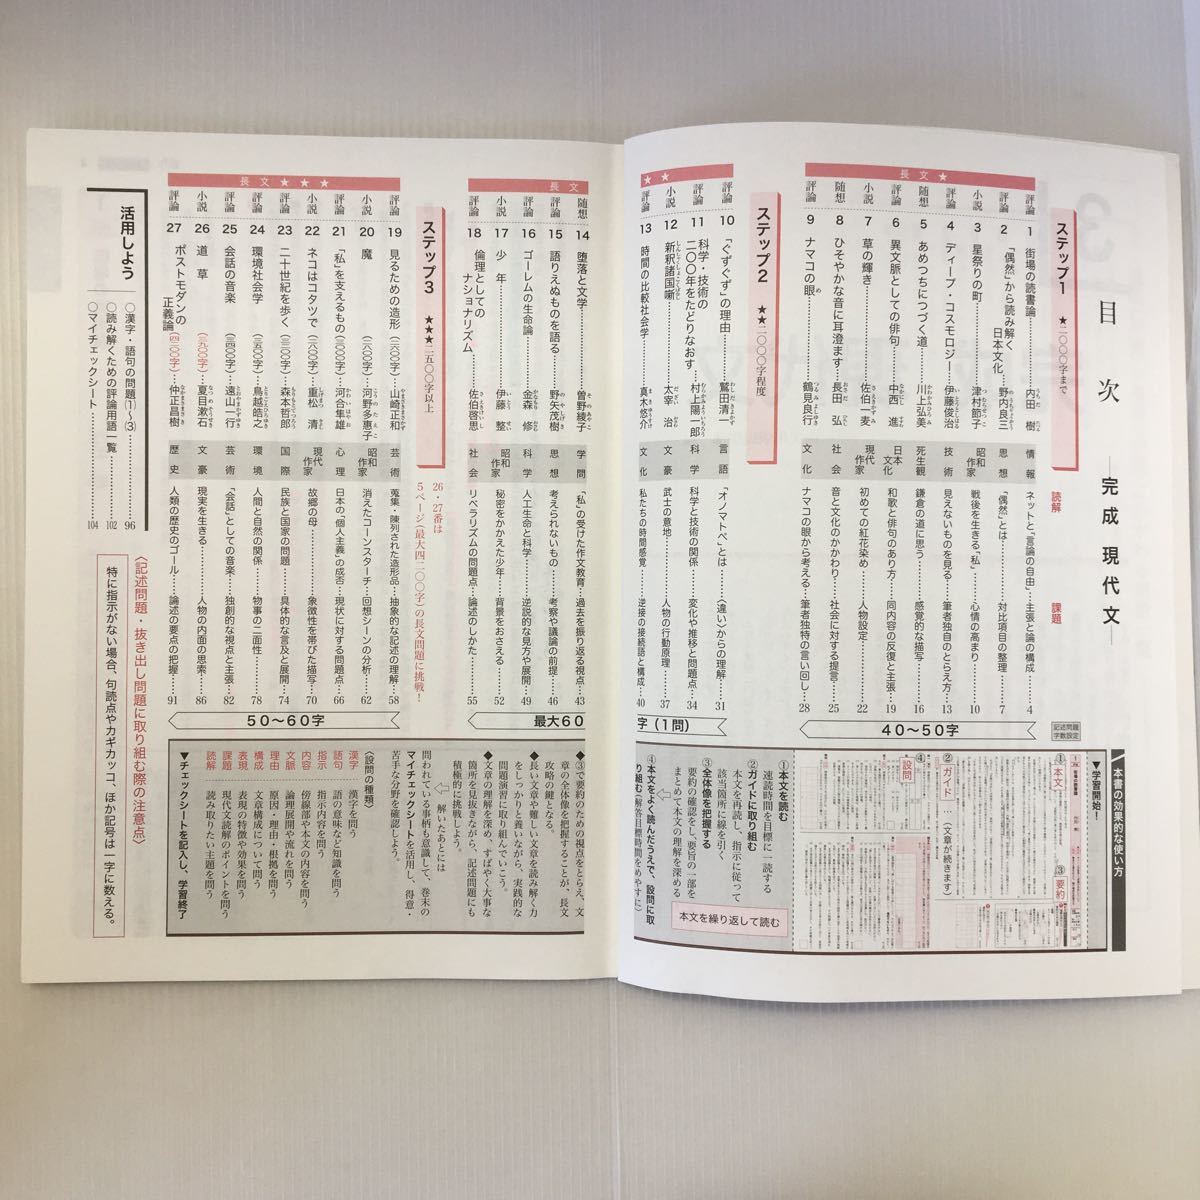 目次
―完成 現代文―
ステップ1 ★二〇〇〇字まで
読解
課題
長文★
評論 1 街場の読書論 内田 樹 情報 ネットと「言論の自由」 主張と論の構成 4
評論 2 「偶然」から読み解く日本文化 野内良三 思想 「偶然」とは 対比項目の整理 7
小説 3 星祭りの町 津村節子 昭和作家 戦後を生きる「私」 心情の高まり 10
評論 4 ディープ・コスモロジー 伊藤俊治 技術 見えないものを見る 筆者独自のとらえ方 13
随想 5 あめつちにつづく道 川上弘美 死生観 鎌倉の道に思う 感覚的な描写 16
評論 6 異文脈としての俳句 中西 進 日本文化 和歌と俳句のあり方 同内容の反復と主張 19
小説 7 草の輝き 佐伯一麦 現代作家 初めての紅花染め 人物設定 22
随想 8 ひそやかな音に耳澄ます 長田 弘 社会 音と文化のかかわり 社会に対する提言 25
評論 9 ナマコの眼 鶴見良行 文化 ナマコの眼から考える 筆者独特の言い回し 28
記述問題字数設定
40〜50字
ステップ2 ★★二〇〇〇字程度
評論 10 「ぐずぐず」の理由 鷲田清一 言語 「オノマトペ」とは 〈違い〉からの理解 31
評論 11 科学・技術の二〇〇年をたどりなおす 村上陽一郎 科学 科学と技術の関係 変化や推移と問題点 34
小説 12 新釈諸国噺 太宰 治 文豪 武士の意地 人物の行動原理 37
評論 13 時間の比較社会学 真木悠介 文化 私たちの時間感覚 逆接の接続語と構成 40
字(1問)
長文
随想 14 堕落と文学 曽野綾子 学問 「私」の受けた作文教育 過去を振り返る視点 43
評論 15 語りえぬものを語る 野矢茂樹 思想 考えられないもの 考察や議論の前提 46
評論 16 ゴーレムの生命論 金森 修 科学 人工生命と科学 逆説的な見方や展開 49
小説 17 少年 伊藤 整 昭和作家 秘密をかかえた少年 背景をおさえる 52
評論 18 倫理としてのナショナリズム 佐伯啓思 社会 リベラリズムの問題点 論述のしかた 55
最大60
ステップ3 ★★★二五〇〇字以上
26・27番は5ページ(最大四二〇〇字)の長文問題に挑戦!
長文★★★
評論 19 見るための造形(二六〇〇字) 山崎正和 芸術 蒐集・陳列された造形品 抽象的な記述の理解 58
小説 20 魔(二六〇〇字) 河野多惠子 昭和作家 消えたコーンスターチ 回想シーンの分析 62
評論 21 「私」を支えるもの(三〇〇〇字) 河合隼雄 心理 日本の「個人主義」の成否 現状に対する問題点 66
小説 22 ネコはコタツで(二六〇〇字) 重松 清 現代作家 故郷の母 象徴性を帯びた描写 70
評論 23 二十世紀を歩く(三二〇〇字) 森本哲郎 国際 民族と国家の問題 具体的な言及と展開 74
評論 24 環境社会学(三五〇〇字) 鳥越皓之 環境 人間と自然の関係 物事の二面性 78
評論 25 会話の音楽(三四〇〇字) 遠山一行 芸術 「会話」としての音楽 独創的な視点と主張 82
小説 26 道草(三九〇〇字) 夏目漱石 文豪 現実を生きる 人物の内面の思索 86
評論 27 ポストモダンの正義論(四二〇〇字) 仲正昌樹 歴史 人類の歴史のゴール 論述の要点の把握 91
50〜60字
活用しよう
○漢字・語句の問題(1)〜(3) 96
○読み解くための評論用語一覧 102
○マイチェックシート 104
〈記述問題・抜き出し問題に取り組む際の注意点〉
特に指示がない場合、句読点やカギカッコ、ほか記号は一字に数える。
本書の効果的な使い方
▼学習開始!
①本文
③要約
②ガイド …(文章が続きます)
④設問
①本文を読む
速読時間を目標に一読する
②ガイドに取り組む
本文を再読し、指示に従って該当箇所に線を引く
③全体像を把握する
要約の確認をし、要旨の一部をまとめて本文の理解を深める
本文を繰り返して読む
④本文をよく読んだうえで、設問に取り組む(解答目標時間をめやすに)
◆③で要約のための視点をとらえ、文章の全体像を把握することが、長文攻略の鍵となる。
◆長い文章や難しい文章を読み解く力をしっかりと養いながら、実践的な問題演習に取り組んでいこう。
◆文章の理解を深め、すばやく大事な箇所を見抜きながら、記述問題にも積極的に挑戦しよう。
解いたあとには
問われている事柄も意識して、巻末のマイチェックシートを活用し、得意・苦手な分野を確認しよう。
〈設問の種類〉
漢字 漢字を問う
語句 語の意味など知識を問う
指示 指示内容を問う
内容 傍線部や本文の内容を問う
文脈 論理展開や流れを問う
理由 原因・理由・根拠を問う
構成 文章構成について問う
表現 表現の特徴や効果を問う
課題 現代文読解のポイントを問う
読解 読み取りたい主題を問う
▼チェックシートを記入し、学習終了